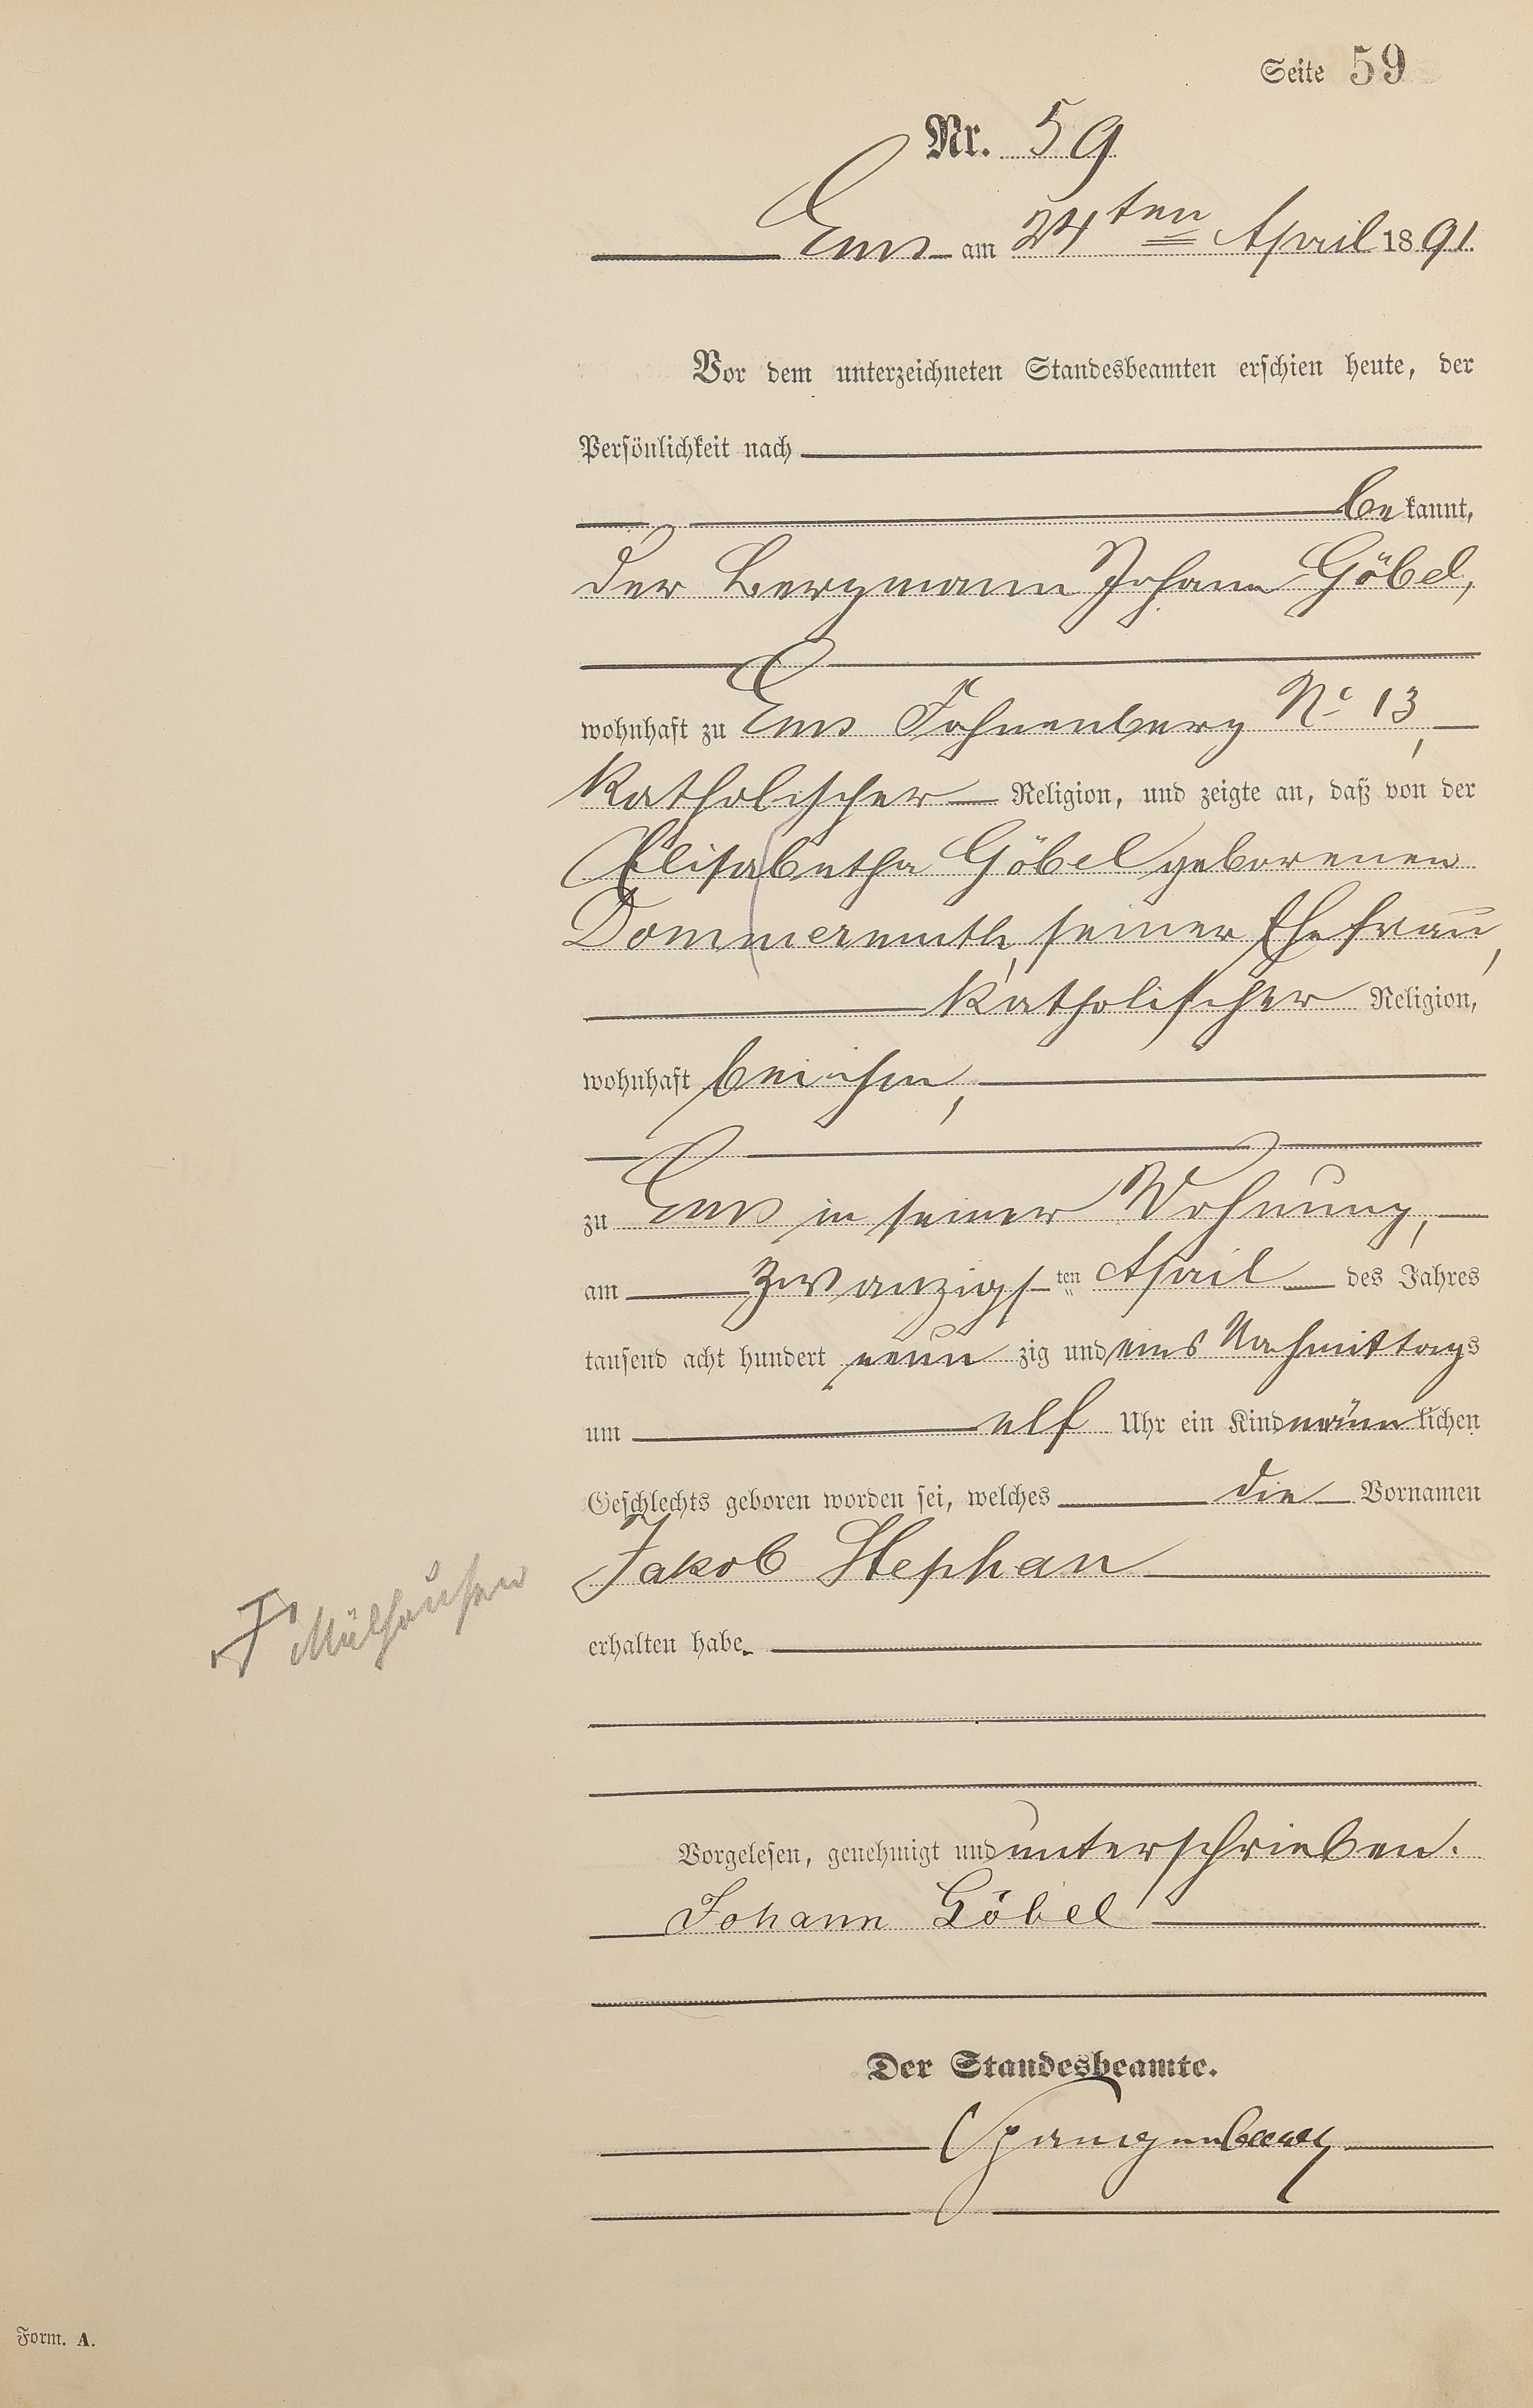 Seite 59
Nr. 59
Ems am 24ten April 1891
Vor dem unterzeichneten Standesbeamten erschien heute, der
Persönlichkeit nach
bekannt,
der Bergmann Johann Göbel,
wohnhaft zu Ems Fahnenberg No 13,
katholischer Religion, und zeigte an, daß von der
Elisabetha Göbel geborenen
Dommermuth, seiner Ehefrau,
katholischer Religion,
wohnhaft bei ihm,
zu Ems in seiner Wohnung,
am zwanzigsten April des Jahres
tausend acht hundert neunzig und eins Nachmittags
um elf Uhr ein Kind männlichen
Geschlechts geboren worden sei, welches die Vornamen
Jakob Stephan
erhalten habe.
Mülhausen
Vorgelesen, genehmigt und unterschrieben.
Johann Göbel
Der Standesbeamte.
Spangenberg
Form. A.